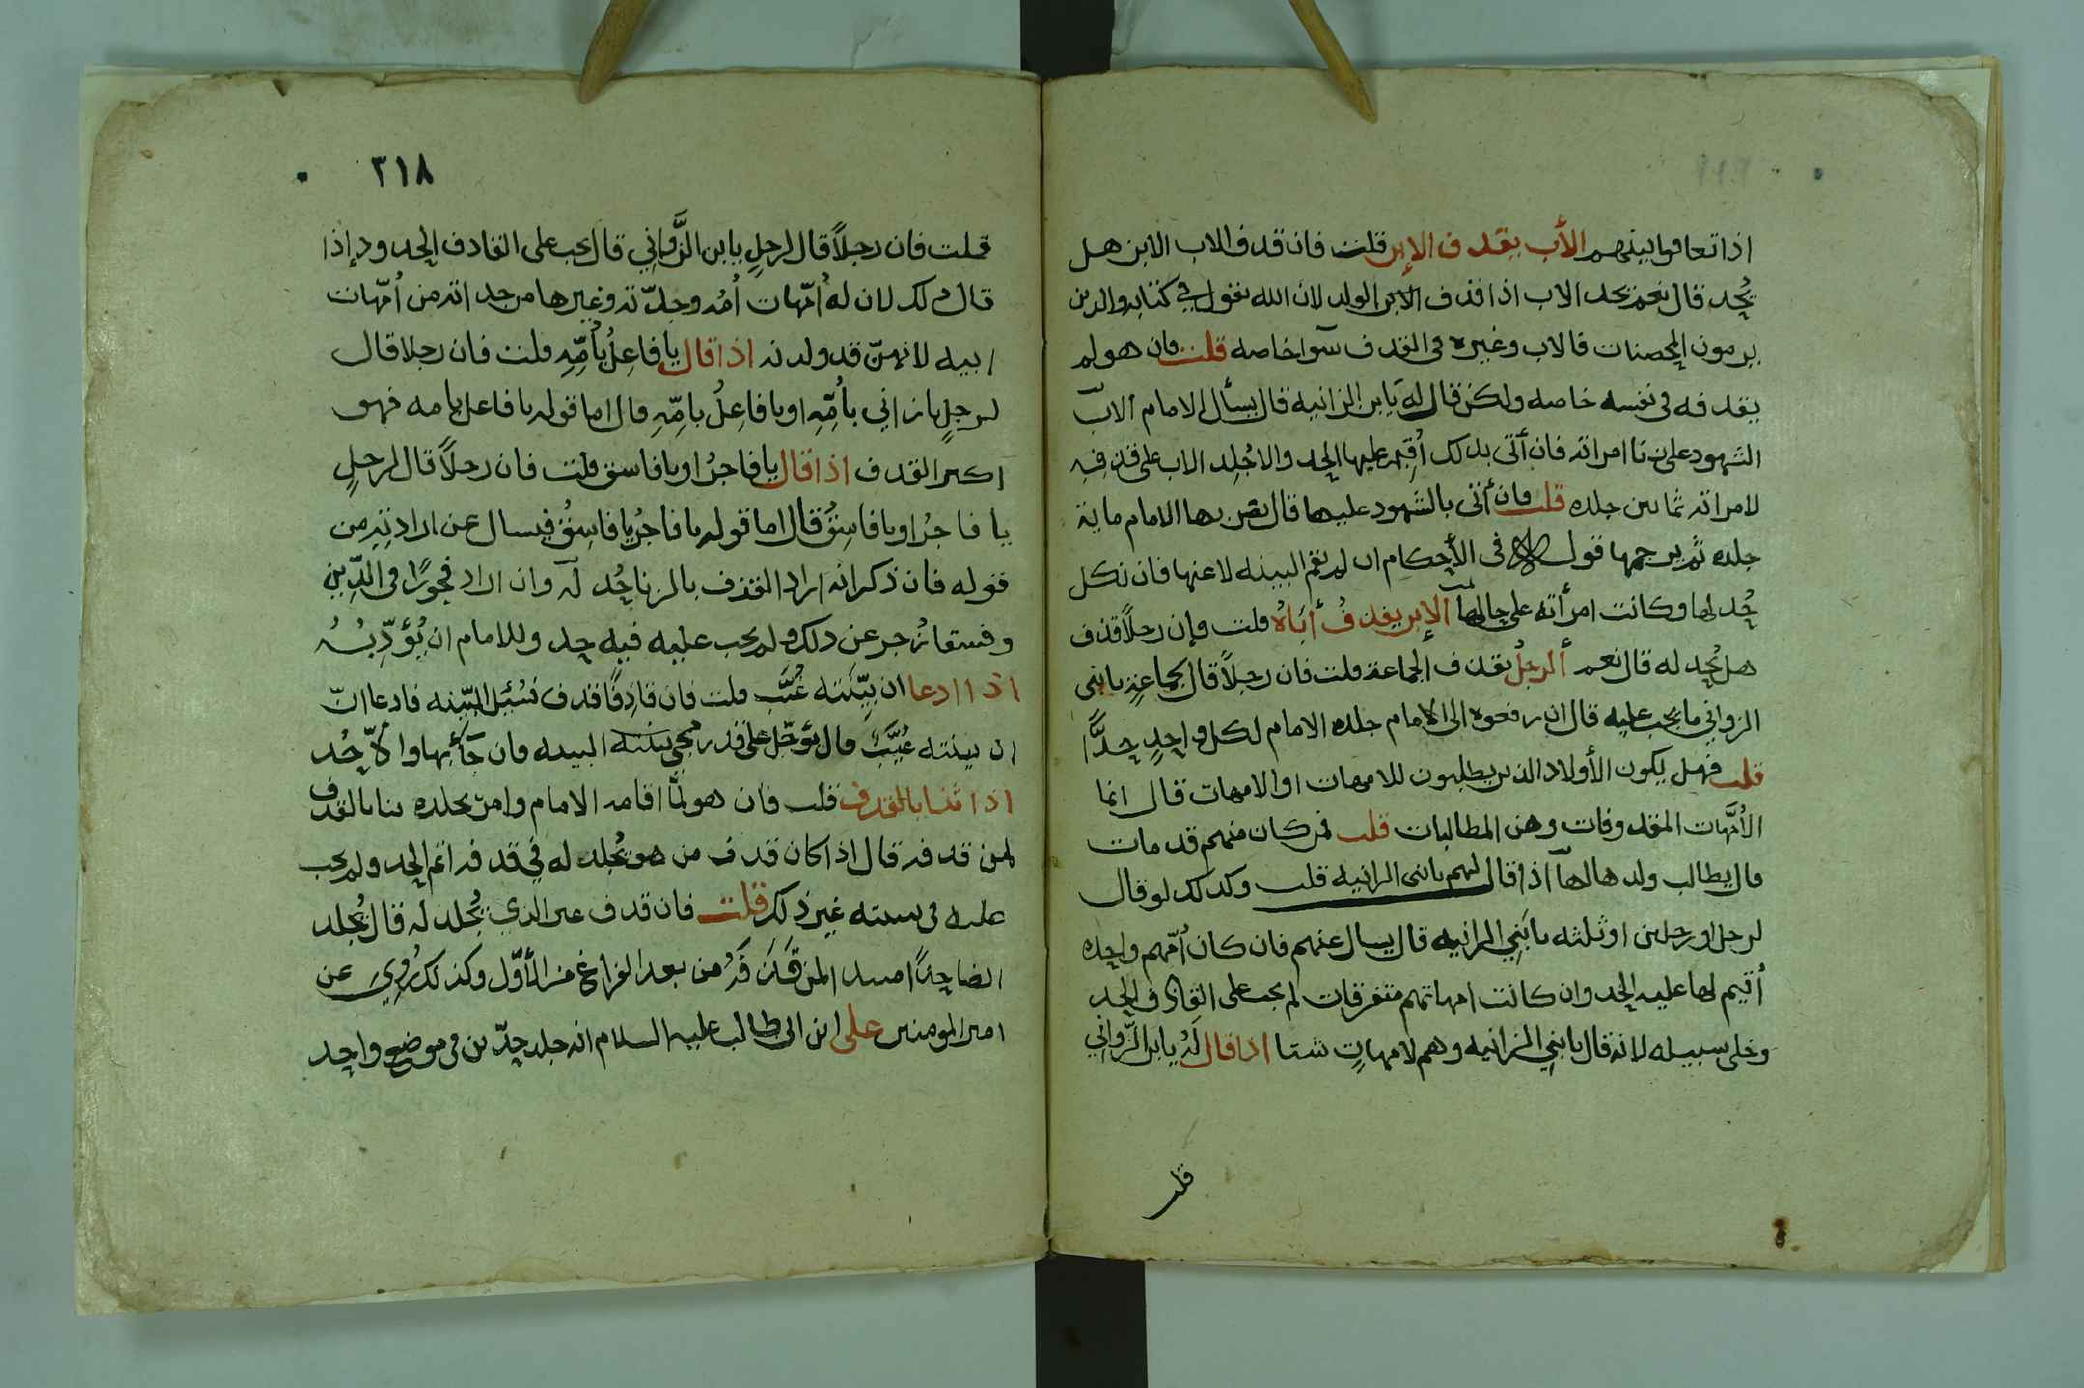 اذا تعافوا بينهم الأب يقذف الإبن قلت فان قذف الاب الابن هل
يُحد قال نعم يحد الاب اذا قذف الابن الولد لان الله يقول في كتابه والذين
يرمون المحصنات فالاب وغيره في القذف سوآ خاصه قلت فان هو لم
يقذفه في نفسه خاصه ولكن قال له يابن الزانيه قال يسأل الامام الاب
الشهود على زنا امراته فان أتى بذلك أُقيم عليها الحد والا جُلِد الاب على قذفه
لامراته ثمانين جلده قلت فان أتى بالشهود عليها قال يضربها الامام ماية
جلده ثم يرجمها قوله في الأحكام ان لم يقم البينه لاعنها فان نكل
حُد لها وكانت امرأته على حالها الإبن يقذفُ أبَاهُ قلت وإن رجلاً قذف
هل يُحد له قال نعم ألرجلُ يقذف الجماعة قلت فان رجلاً قال لجماعةٍ يابني
الزواني ما يجب عليه قال ان رفعوه الى الامام جلده الامام لكل واحدٍ حدًّا
قلت فهل يكون الأولاد الذين يطلبون للامهات او الامهات قال انما
الأُمَّهات المقذوفات وهن المطالبات قلت فمن كان منهم قد مات
قال يطالب ولدها لها اذا قال لهم يابنى الزانيه قلت وكذلك لو قال
لرجل او رجلين او ثلثه يابَنِي الزانيه قال يسال عنهم فان كان أُمّهم واحده
أُقيم لها عليه الحد وان كانت امهاتهم متفرقات لم يجب على القاذف الحد
وخلى سبيله لانه قال يابنِي الزانيه وهم لامهاتٍ شتا اذا قال لَهُ يابن الزَّواني
قلت
٣١٨
قلت فان رجلاً قال لرجلٍ يابن الزَّواني قال يجب على القاذف الحدود إذا
قال ذلك لان لهُ أمّهات أُمه وجدّته وغيرها من جداته من أُمّهات
ابيه لانهنّ قد ولدنه اذا قال يا فاعِلُ بأُمِّهِ قلت فان رجلا قال
لرجلٍ يازاني بأُمِّهِ او يا فاعِلُ بامِّهِ قال اما قوله يا فاعل بامه فهو
اكبر القذف اذا قال يا فاجرُ او يا فاسق قلت فان رجلاً قال لرجلٍ
يا فاجرُ او يا فاسِقُ قال اما قوله يا فاجرُ يا فاسِقُ فيسال عن ارادتِهِ من
قوله فان ذكر انه اراد القذف بالزنا حُد له وان اراد فجورًا في الدِّين
وفسقا زُجر عن ذلك ولم يجب عليه فيه حد وللامام ان يُؤَدِّبُهُ
اذا ادعا ان بيِّنته غُيَّبٌ قلت فان قاذِفًا قذف فسُئل البيّنه فادعا انّ
ان بينته غُيَّبٌ قال يؤجّل على قدر مجي بينته البينه فان جَآء بها والاّ حُد
اذا ثنا بالقذف قلت فان هو لمّا اقامه الامام وامر بجلده ثنا بالقذف
لمن قذفه قال اذا كان قذف من هو يُجلد له في قذفه اتم الحد ولم يجب
عليه غير ذلك قلت فان قذف غير الذي يُجلد له قال يُجلد
ايضا حدًّا لمن قَذَفَهُ من بعد الفراغ من الأوّل وكذلك رُوي عن
امير المومنين على ابن ابى طالب عليه السلام انه جلد حدّين في موضع واحد